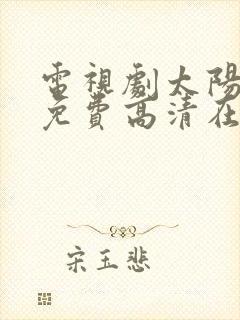 電視劇太陽
免費高清在
宋玉悲